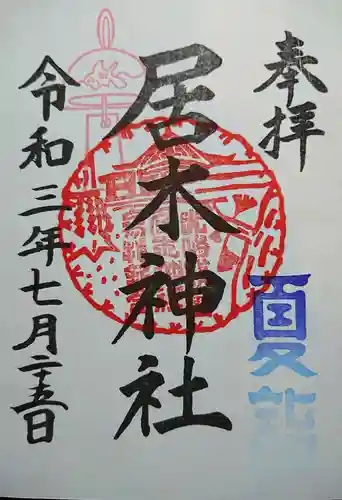 奉拝
居木神社
令和三年七月二十五日
夏詣